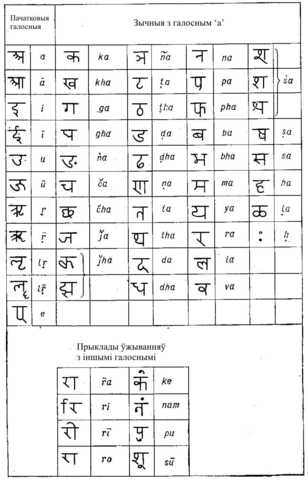 Пачатковыя
галосныя
Зычныя з галосным ‘а’
अ a क ka ञ ña न na श
आ ā ख kha ट ṭa प pa श śa
इ i ग ga ठ ṭha फ pha श
ई ī घ gha ड ḍa ब ba ष ṣa
उ u ङ ṅa ढ ḍha भ bha स sa
ऊ ū च ča ण ṇa म ma ह ha
ऋ ṛ छ čha त ta य ya ळ ḷa
ॠ ṝ ज ǰa थ tha र ra ः ḥ
ऌ lṛ झ ǰha द da ल la
ॡ lṝ झ ध dha व va
ए e
Прыклады ўжыванняў
з іншымі галоснымі
रा r̄a कें ke
रि ri नं nam
री rī पु pu
रा ro शू sū